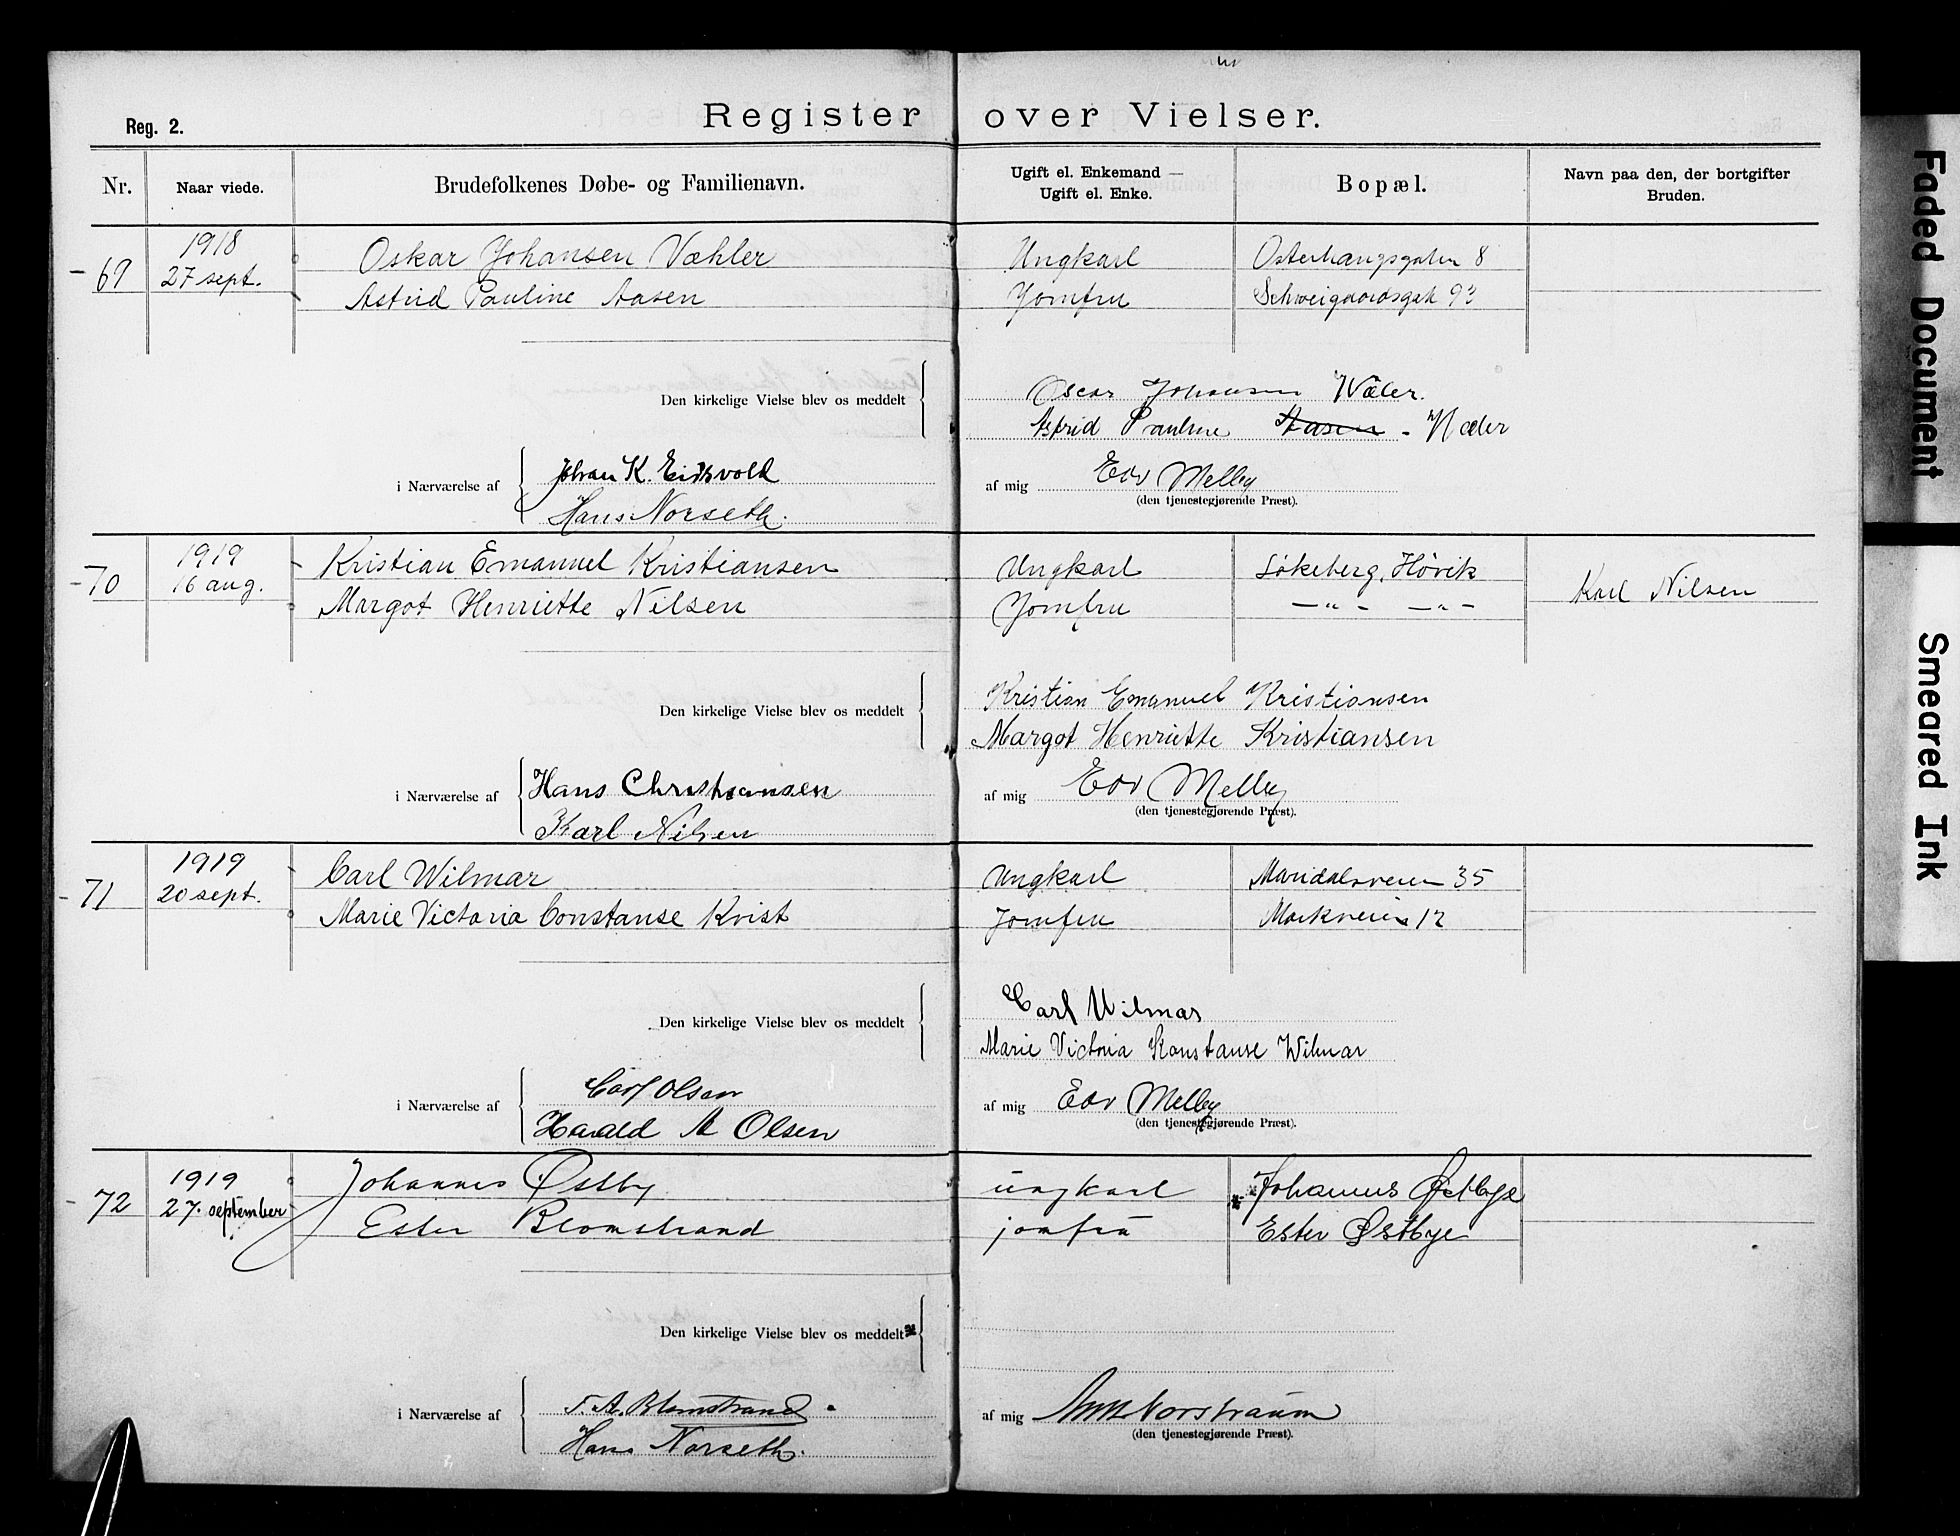 Register over Vielser.
Reg. 2.
Nr. Naar viede. Brudefolkenes Døbe- og Familienavn. Ugift el. Enkemand — Ugift el. Enke. Bopæl. Navn paa den, der bortgifter Bruden.
1918
69 27 sept. Oskar Johansen Væhler Ungkarl Osterhausgaten 8
Astrid Pauline Aasen Jomfru Schweigaardsgat 93
Den kirkelige Vielse blev os meddelt
Oscar Johansen Wäler.
Astrid Pauline Aasen - Wæler
i Nærværelse af Johan K. Eidsvold
Hans Norseth.
af mig Edv Melby
(den tjenestegjørende Præst).
1919
70 16 aug. Kristian Emanuel Kristiansen Ungkarl Løkeberg, Høvik
Margot Henriette Nilsen Jomfru — " — — " — Karl Nilsen
Den kirkelige Vielse blev os meddelt
Kristian Emanuel Kristiansen
Margot Henriette Kristiansen
i Nærværelse af Hans Christiansen
Karl Nilsen
af mig Edv Melby
(den tjenestegjørende Præst).
1919
71 20 sept. Carl Wilmar Ungkarl Maridalsveien 35
Marie Victoria Constanse Kvist Jomfru Markveien 12
Den kirkelige Vielse blev os meddelt
Carl Wilmar
Marie Victoria Konstanse Wilmar
i Nærværelse af Carl Olsen
Harald A Olsen
af mig Edv Melby
(den tjenestegjørende Præst).
1919
72 27. september Johannes Østby ungkarl Johannes Østbye
Ester Blomstrand jomfru Ester Østbye
Den kirkelige Vielse blev os meddelt
i Nærværelse af F. A. Blomstrand
Hans Norseth.
af mig
(den tjenestegjørende Præst).
Faded Document
Smeared Ink